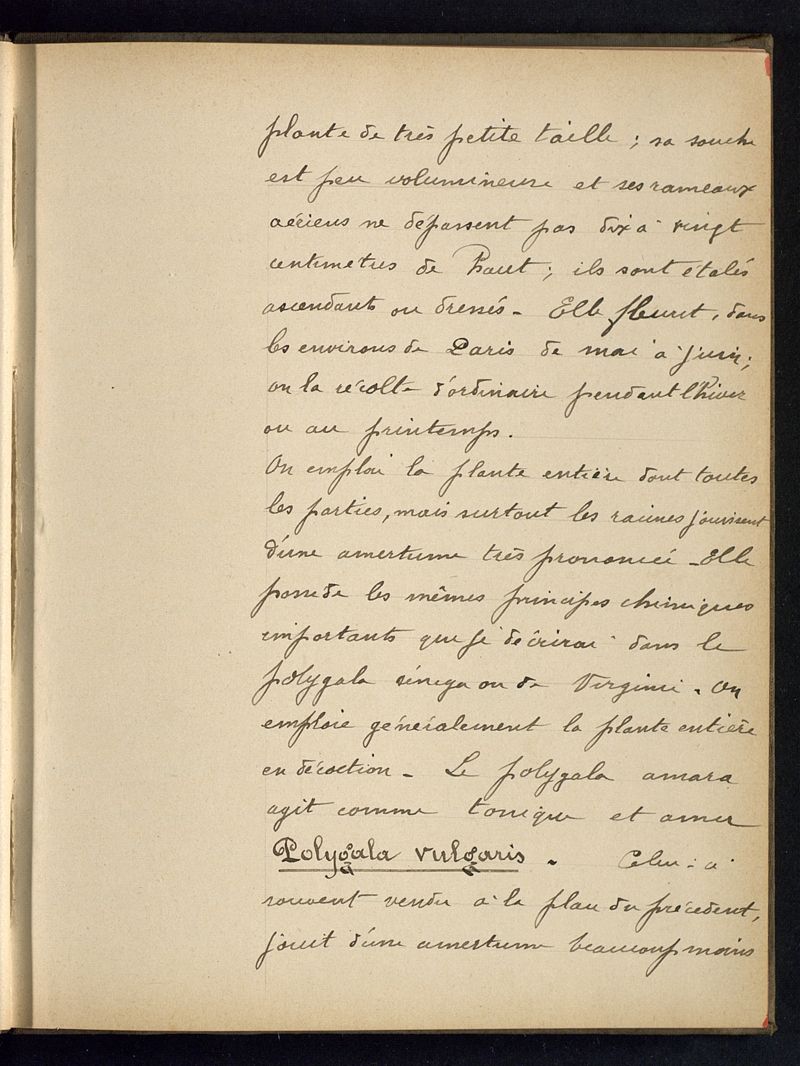 plante de très petite taille ; sa souche
est peu volumineuse et ses rameaux
aériens ne dépassent pas dix à vingt
centimètres de haut ; ils sont étalés
ascendants ou dressés - Elle fleurit, dans
les environs de Paris de mai à juin ;
on la récolte d'ordinaire pendant l'hiver
ou au printemps.
On emploi la plante entière dont toutes
les parties, mais surtout les racines jouissent
d'une amertume très prononcée - Elle
possède les mêmes principes chimiques
importants que je décrirai dans le
polygala sénega ou de Virginie - On
emploie généralement la plante entière
en décoction - Le polygala amara
agit comme tonique et amer
Polygala vulgaris - Celui-ci
souvent vendu à la place du précédent,
jouit d'une amertume beaucoup moins